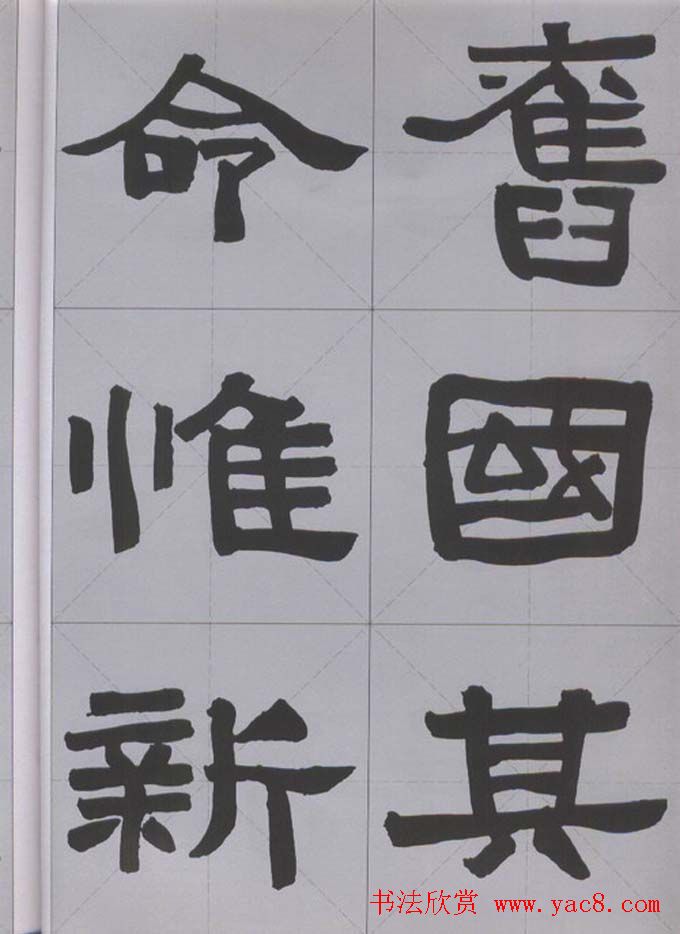 舊國其
命惟新
书法欣赏 www.yac8.com